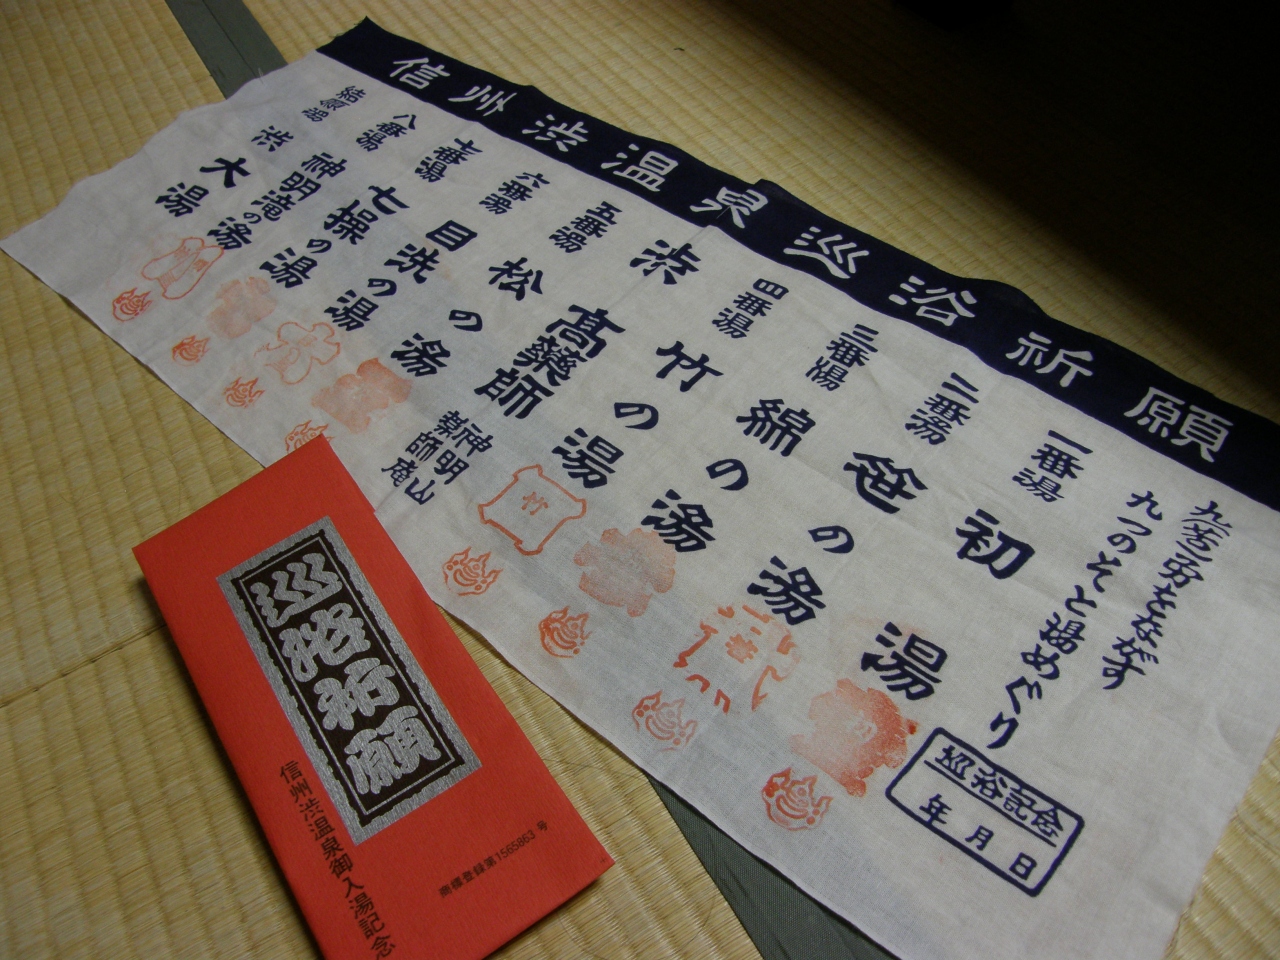 信州渋温泉巡浴祈願
九苦労をながす
九つのそと湯めぐり
一番湯
初湯
二番湯
笹の湯
三番湯
綿の湯
四番湯
竹の湯
渋高薬師
神明山
薬師庵
五番湯
松の湯
六番湯
目洗の湯
七番湯
七操の湯
八番湯
神明滝の湯
結願湯
渋大湯
竹
巡浴記念
年月日
巡浴祈願
信州渋温泉御入湯記念
商標登録第1565863号